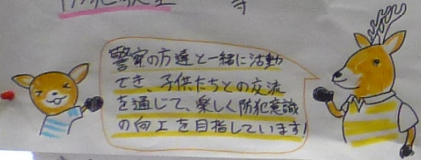 警察の方達と一緒に活動
でき、子供たちとの交流
を通じて、楽しく防犯意識
の向上を目指しています!